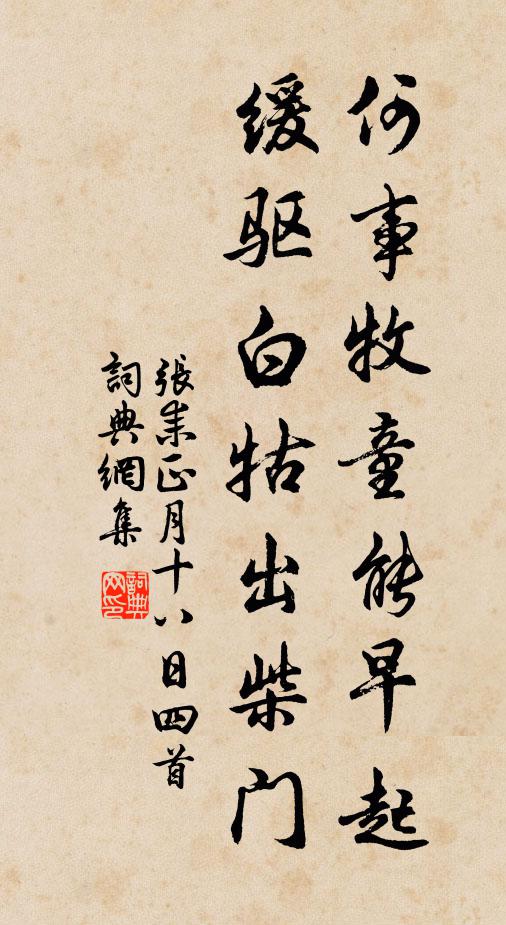 何事牧童能早起
缓驱白牯出柴门
張耒正月十八日四首
詞典網集
詞典
网印